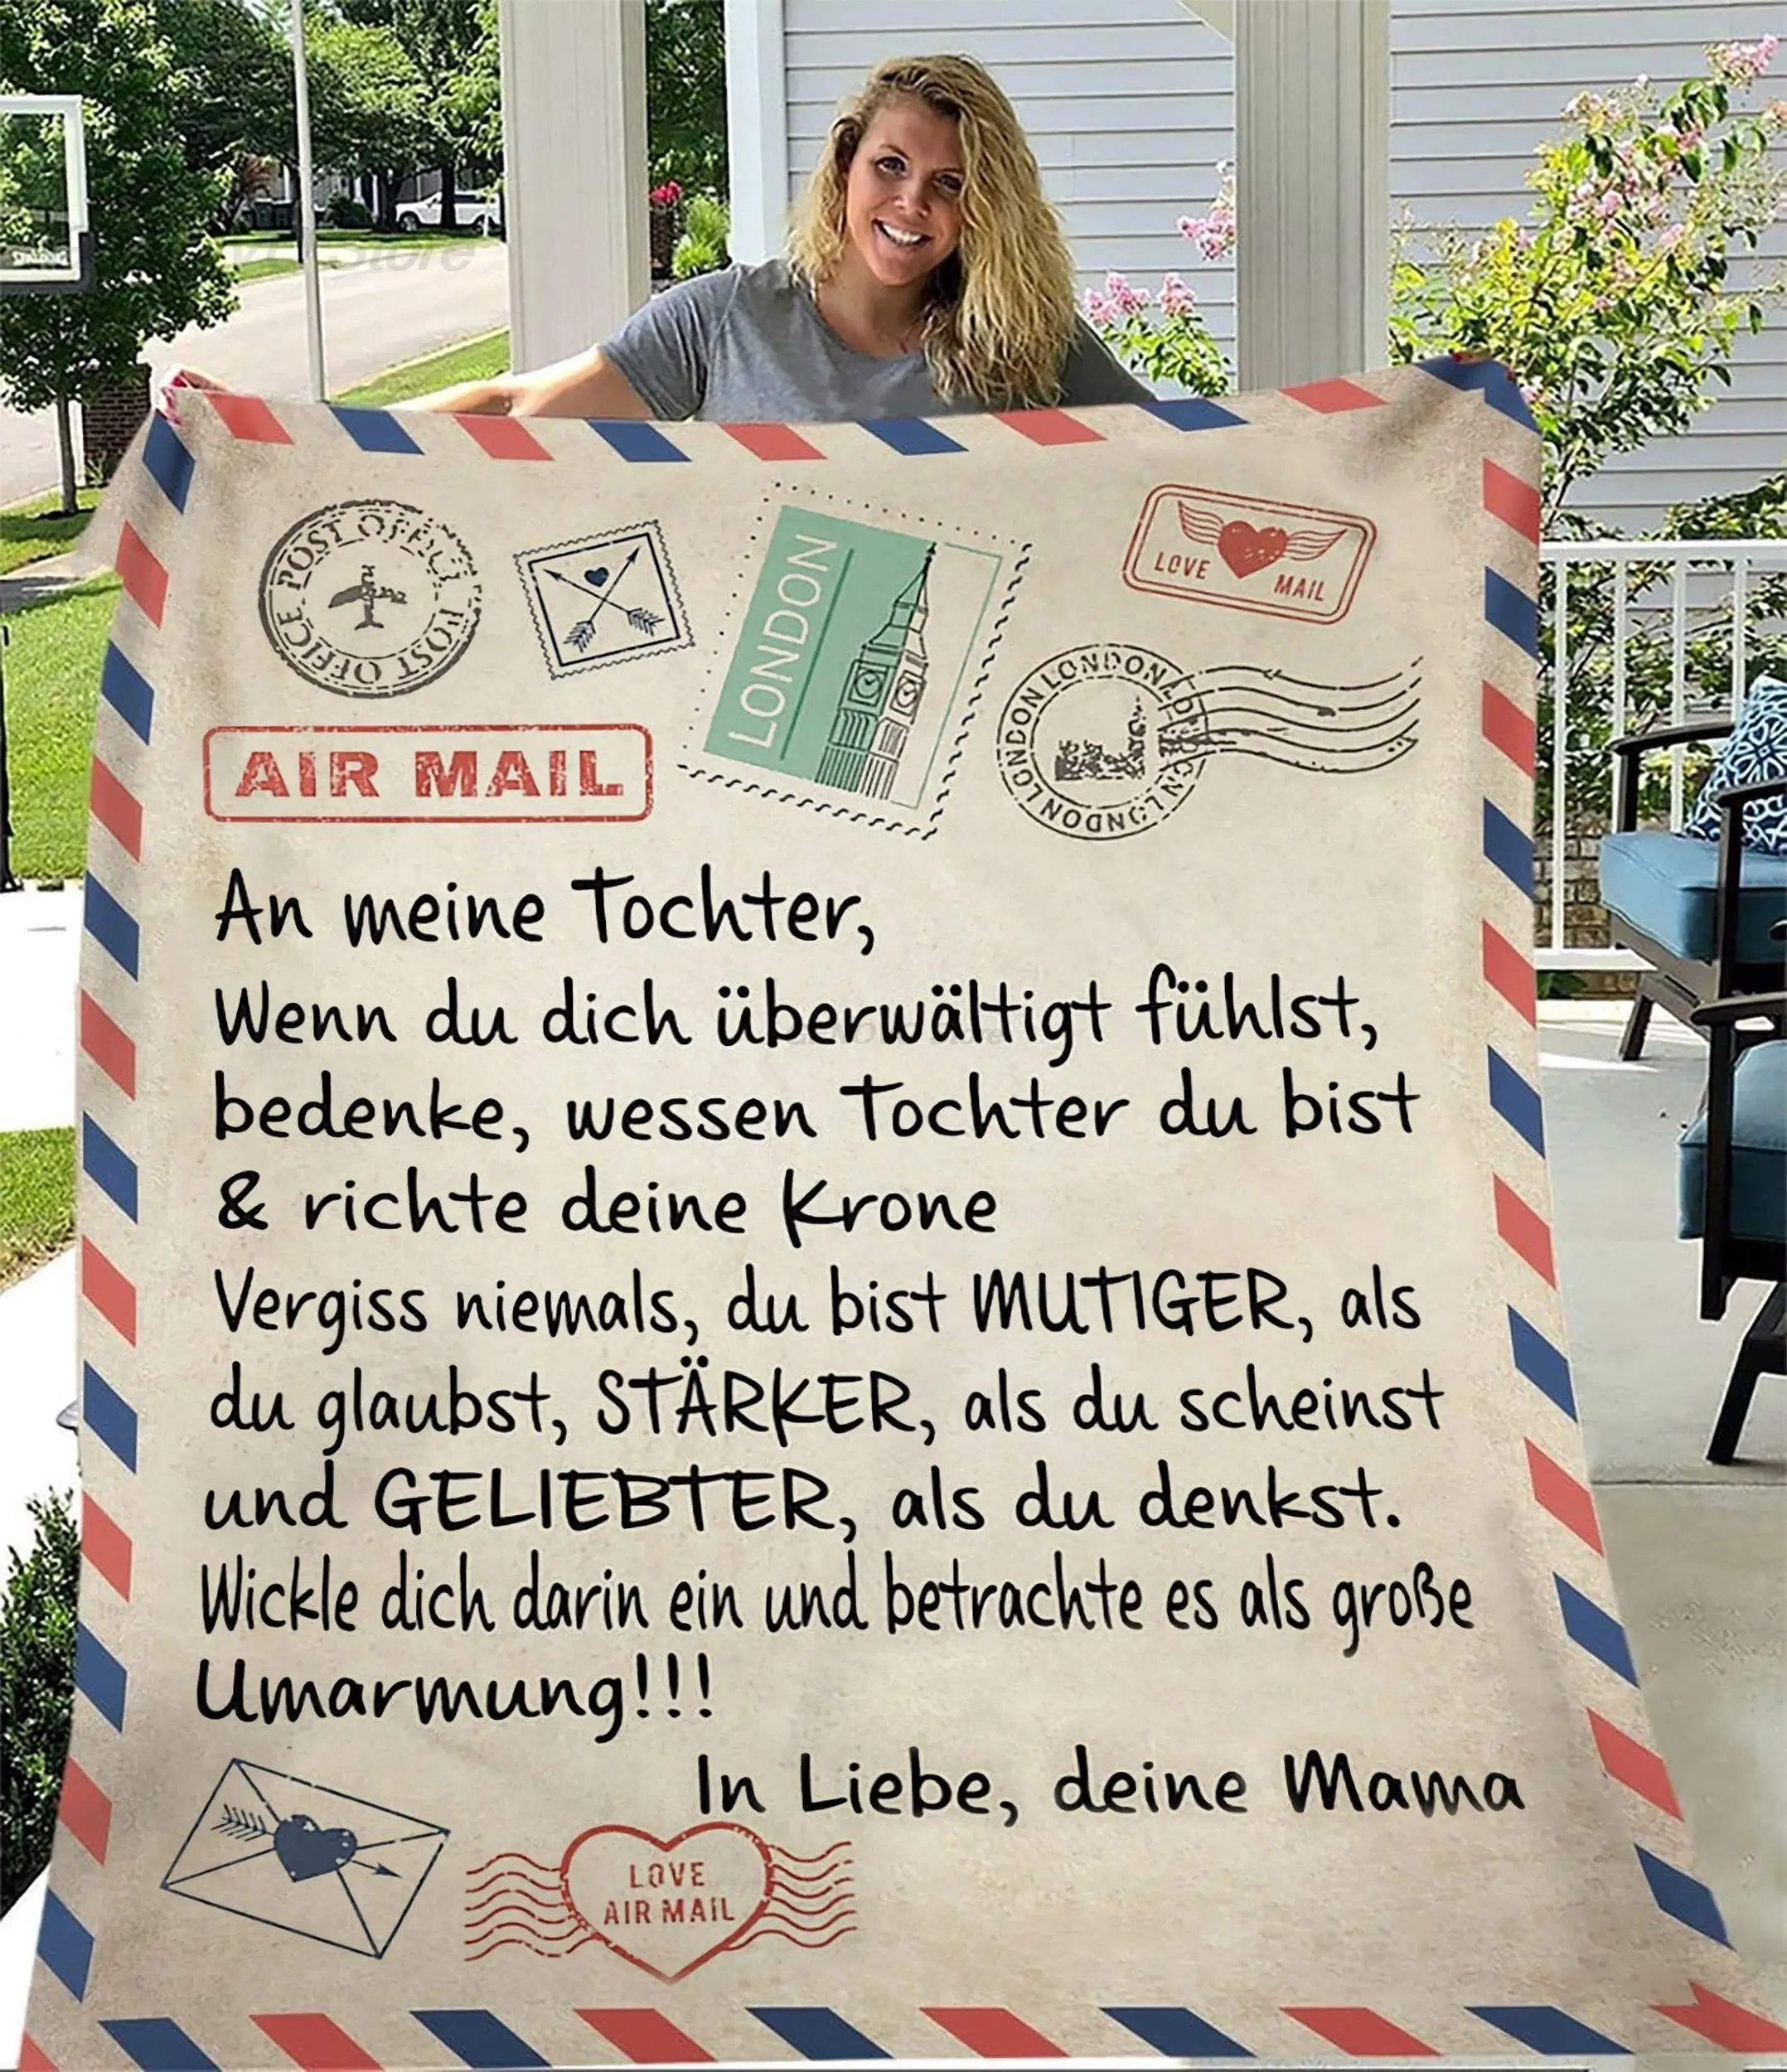 Store
POST OFFICE POST OFFICE
LONDON
LOVE MAIL
LONDON LONDON LONDON LONDON
AIR MAIL
An meine Tochter,
Wenn du dich überwältigt fühlst,
bedenke, wessen Tochter du bist
& richte deine Krone
Vergiss niemals, du bist MUTIGER, als
du glaubst, STÄRKER, als du scheinst
und GELIEBTER, als du denkst.
Wickle dich darin ein und betrachte es als große
Umarmung!!!
In Liebe, deine Mama
LOVE
AIR MAIL